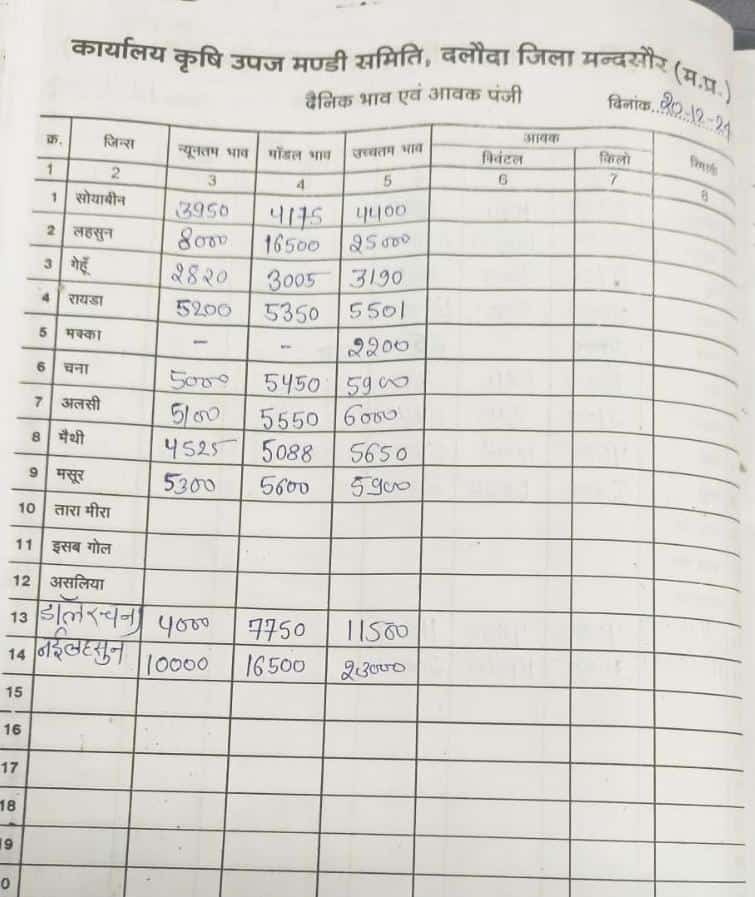 कार्यालय कृषि उपज मण्डी समिति, दलौदा जिला मन्दसौर (म.प्र.)
दैनिक भाव एवं आवक पंजी
दिनांक..20-12-24
क्र. जिन्स न्यूनतम भाव मॉडल भाव उच्चतम भाव आवक
क्विंटल किलो
1 2 3 4 5 6 7 8
1 सोयाबीन 3950 4175 4400
2 लहसुन 8000 16500 25000
3 गेहूँ 2820 3005 3190
4 रायडा 5200 5350 5501
5 मक्का - - 2200
6 चना 5000 5450 5900
7 अलसी 5100 5550 6000
8 मैथी 4525 5088 5650
9 मसूर 5300 5600 5900
10 तारा मीरा
11 इसब गोल
12 असलिया
13 डॉलरचना 4000 7750 11500
14 नईलहसुन 10000 16500 23000
15
16
17
18
9
0